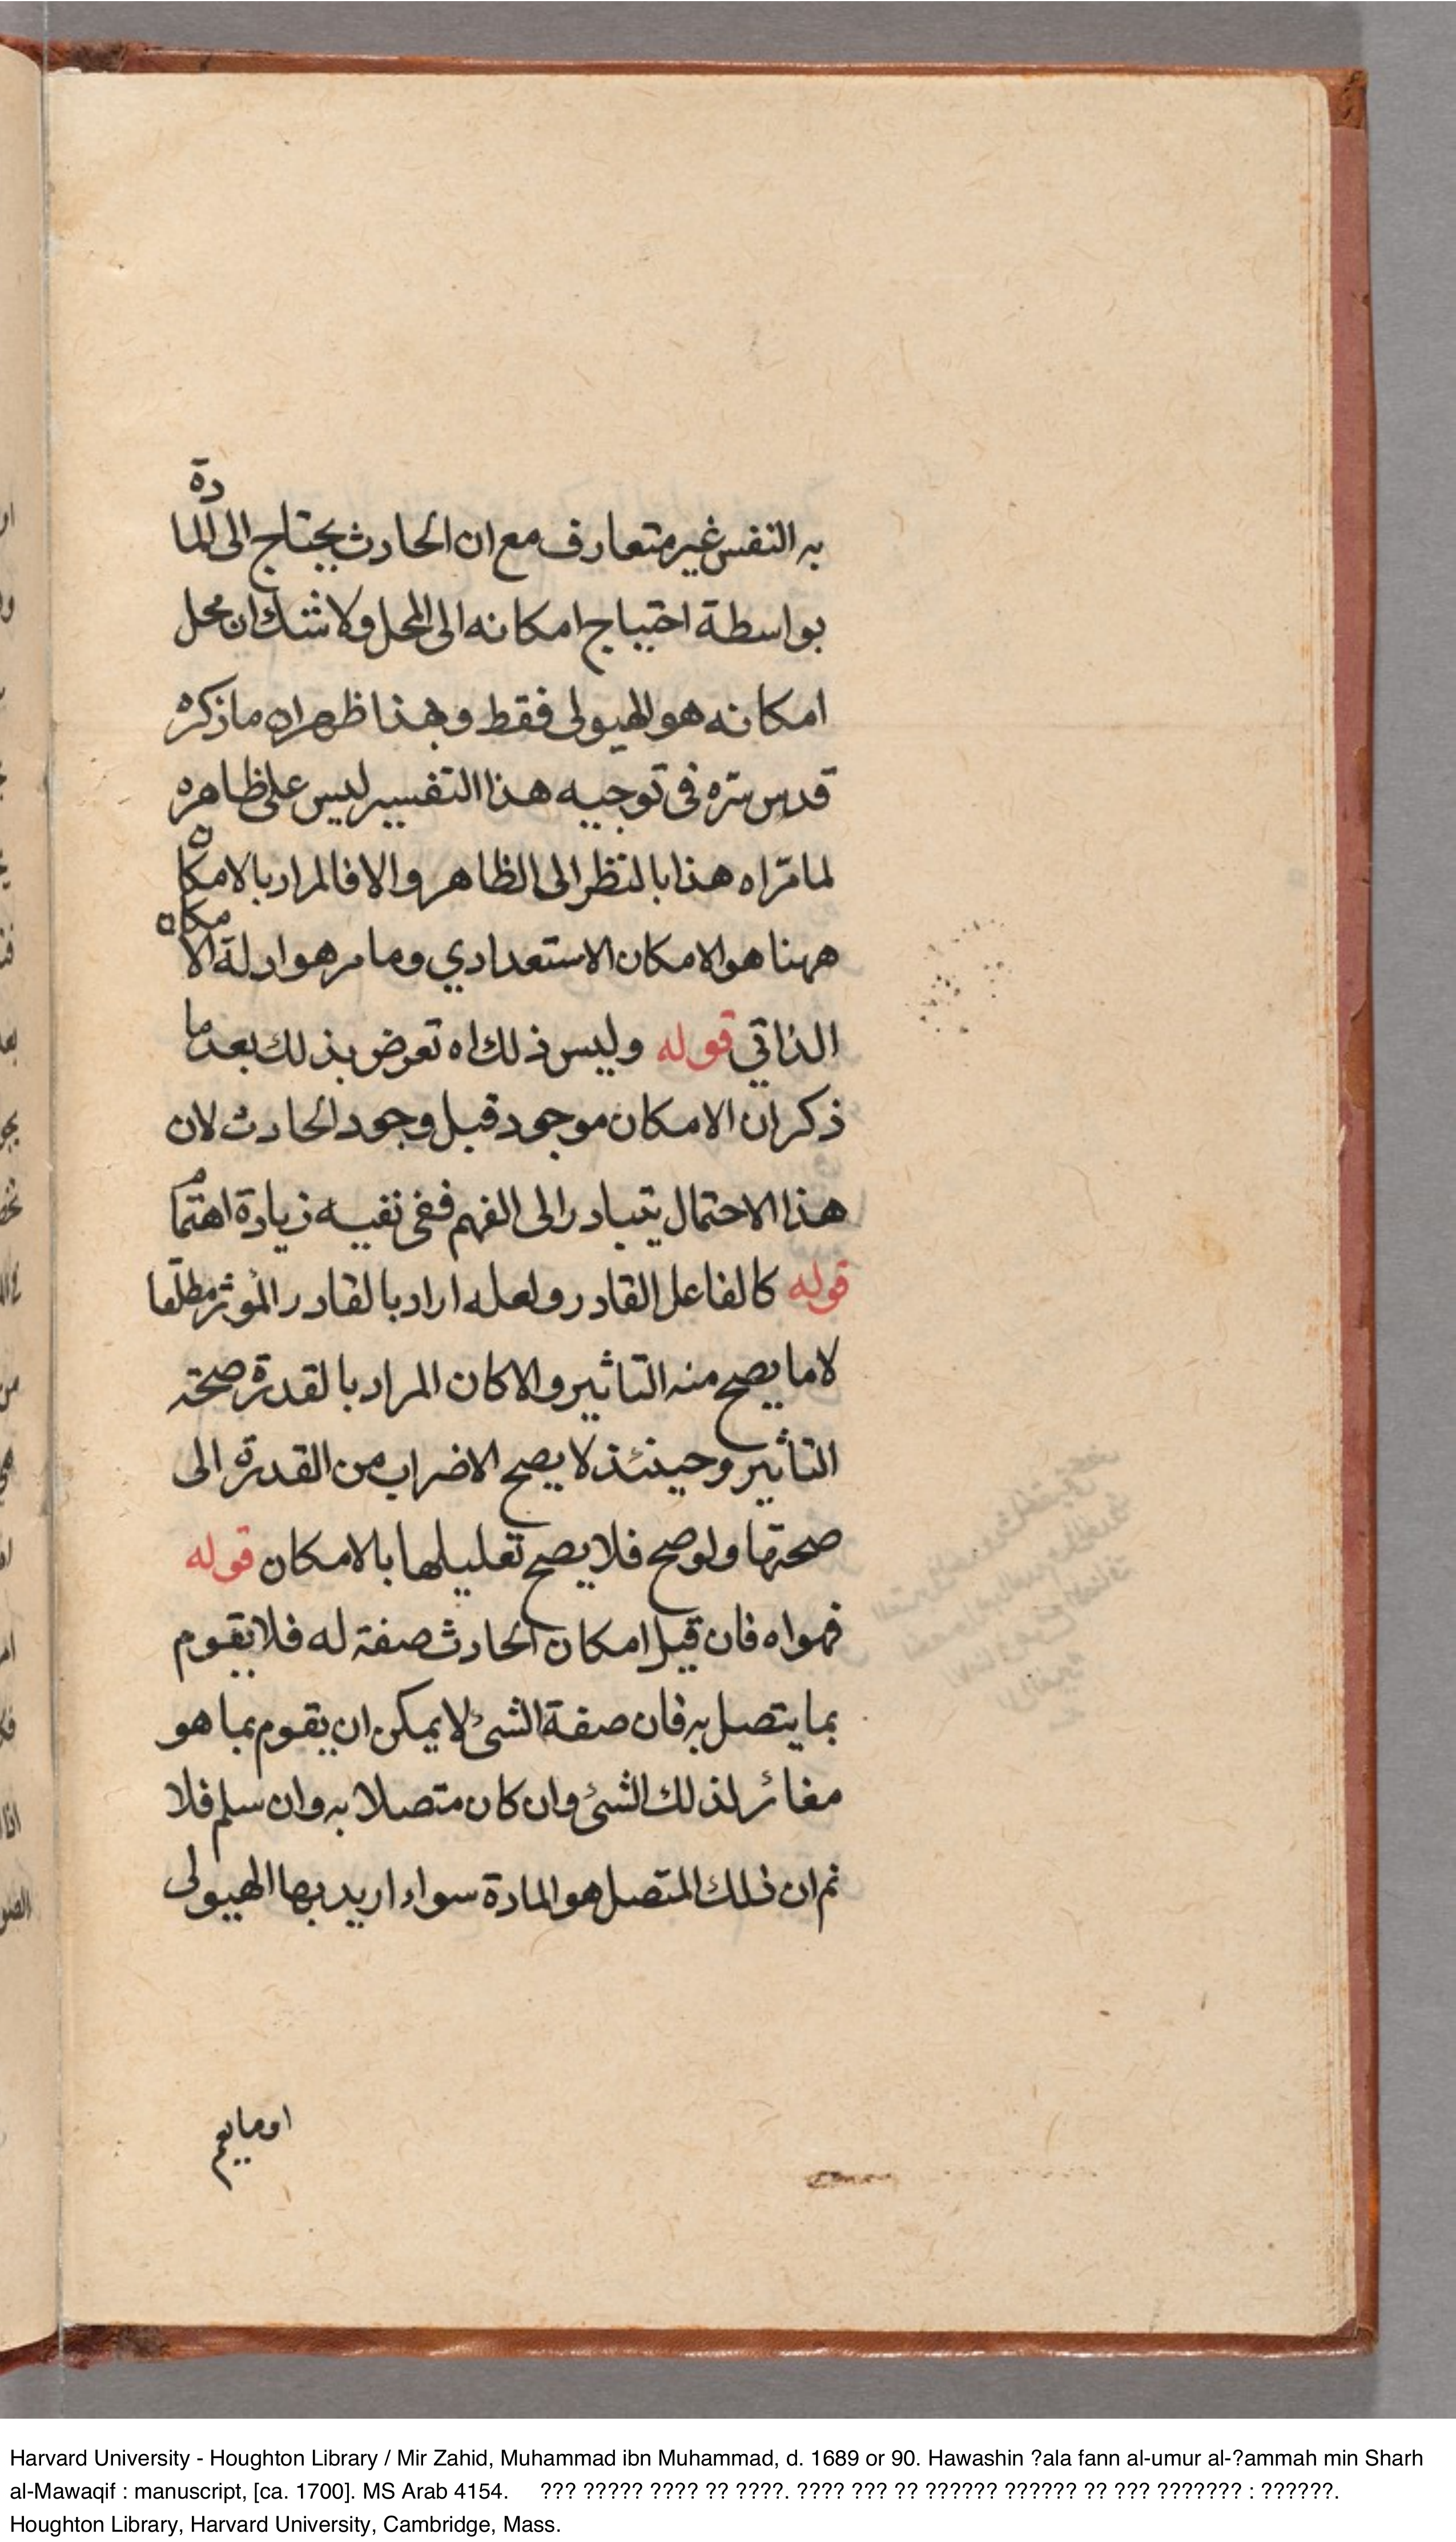 به النفس غير متعارف مع ان الحادث يحتاج الى المادة
بواسطة احتياج امكانه الى المحل ولا شك ان محل
امكانه هو الهيولى فقط وبهذا ظهر ان ما ذكره
قدس سره فى توجيه هذا التفسير ليس على ظاهره
لما مر اه هذا بالنظر الى الظاهر والا فالمراد بالامكان
ههنا هو الامكان الاستعدادي وما مر هو ادلة الامكان
الذاتي قوله وليس ذلك اه تعرض بذلك بعد ما
ذكر ان الامكان موجود قبل وجود الحادث لان
هذا الاحتمال يتبادر الى الفهم ففى نفيه زيادة اهتمام
قوله كالفاعل القادر ولعله اراد بالقادر المؤثر مطلقا
لا ما يصح منه التاثير والا كان المراد بالقدرة صحة
التأثير وحينئذ لا يصح الاضراب من القدرة الى
صحتها ولو صح فلا يصح تعليلها بالامكان قوله
فهو اه فان قيل امكان الحادث صفة له فلا يقوم
بما يتصل به فان صفة الشئ لا يمكن ان يقوم بما هو
مغائر لذلك الشئ وان كان متصلا به وان سلم فلا
نم ان ذلك المتصل هو المادة سواء اريد بها الهيولى
او ما يعم
Harvard University - Houghton Library / Mir Zahid, Muhammad ibn Muhammad, d. 1689 or 90. Hawashin ?ala fann al-umur al-?ammah min Sharh
al-Mawaqif : manuscript, [ca. 1700]. MS Arab 4154. ??? ????? ???? ?? ????. ???? ??? ?? ?????? ?????? ?? ??? ??????? : ??????.
Houghton Library, Harvard University, Cambridge, Mass.